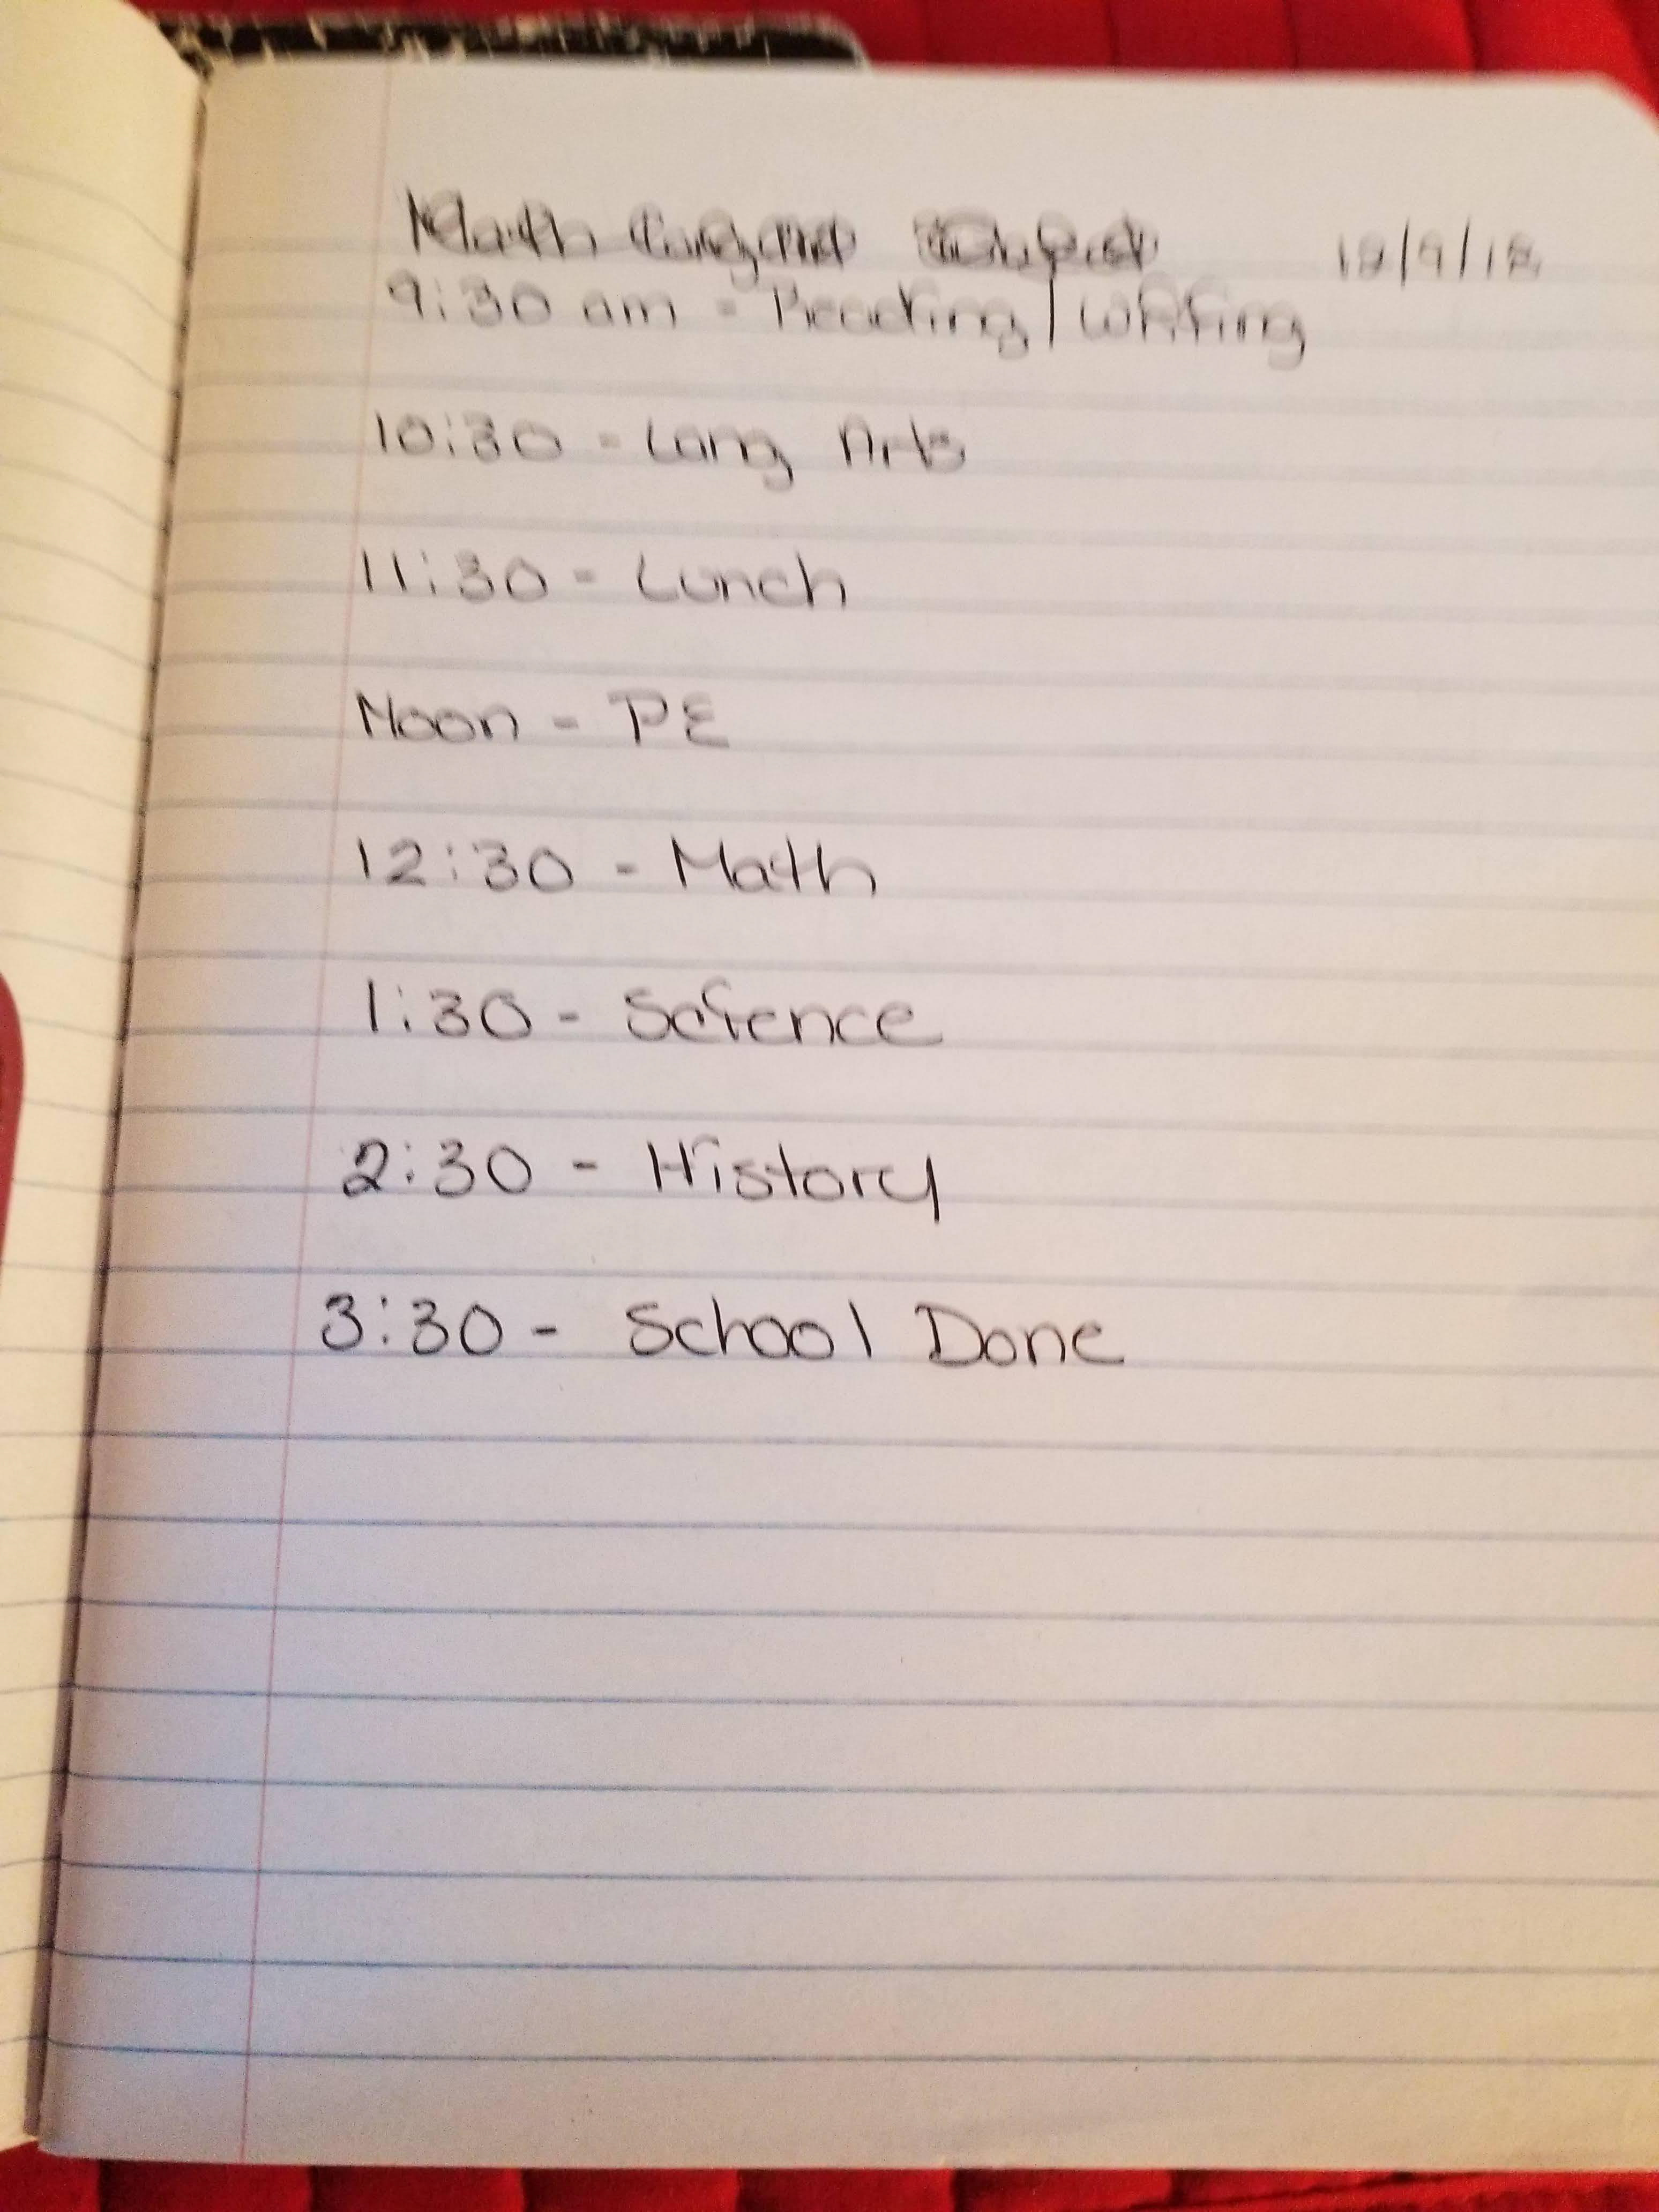 Math
12/9/18
9:30 am - Reading/Writing
10:30 - Lang Arts
11:30 - Lunch
Noon - PE
12:30 - Math
1:30 - Science
2:30 - History
3:30 - School Done